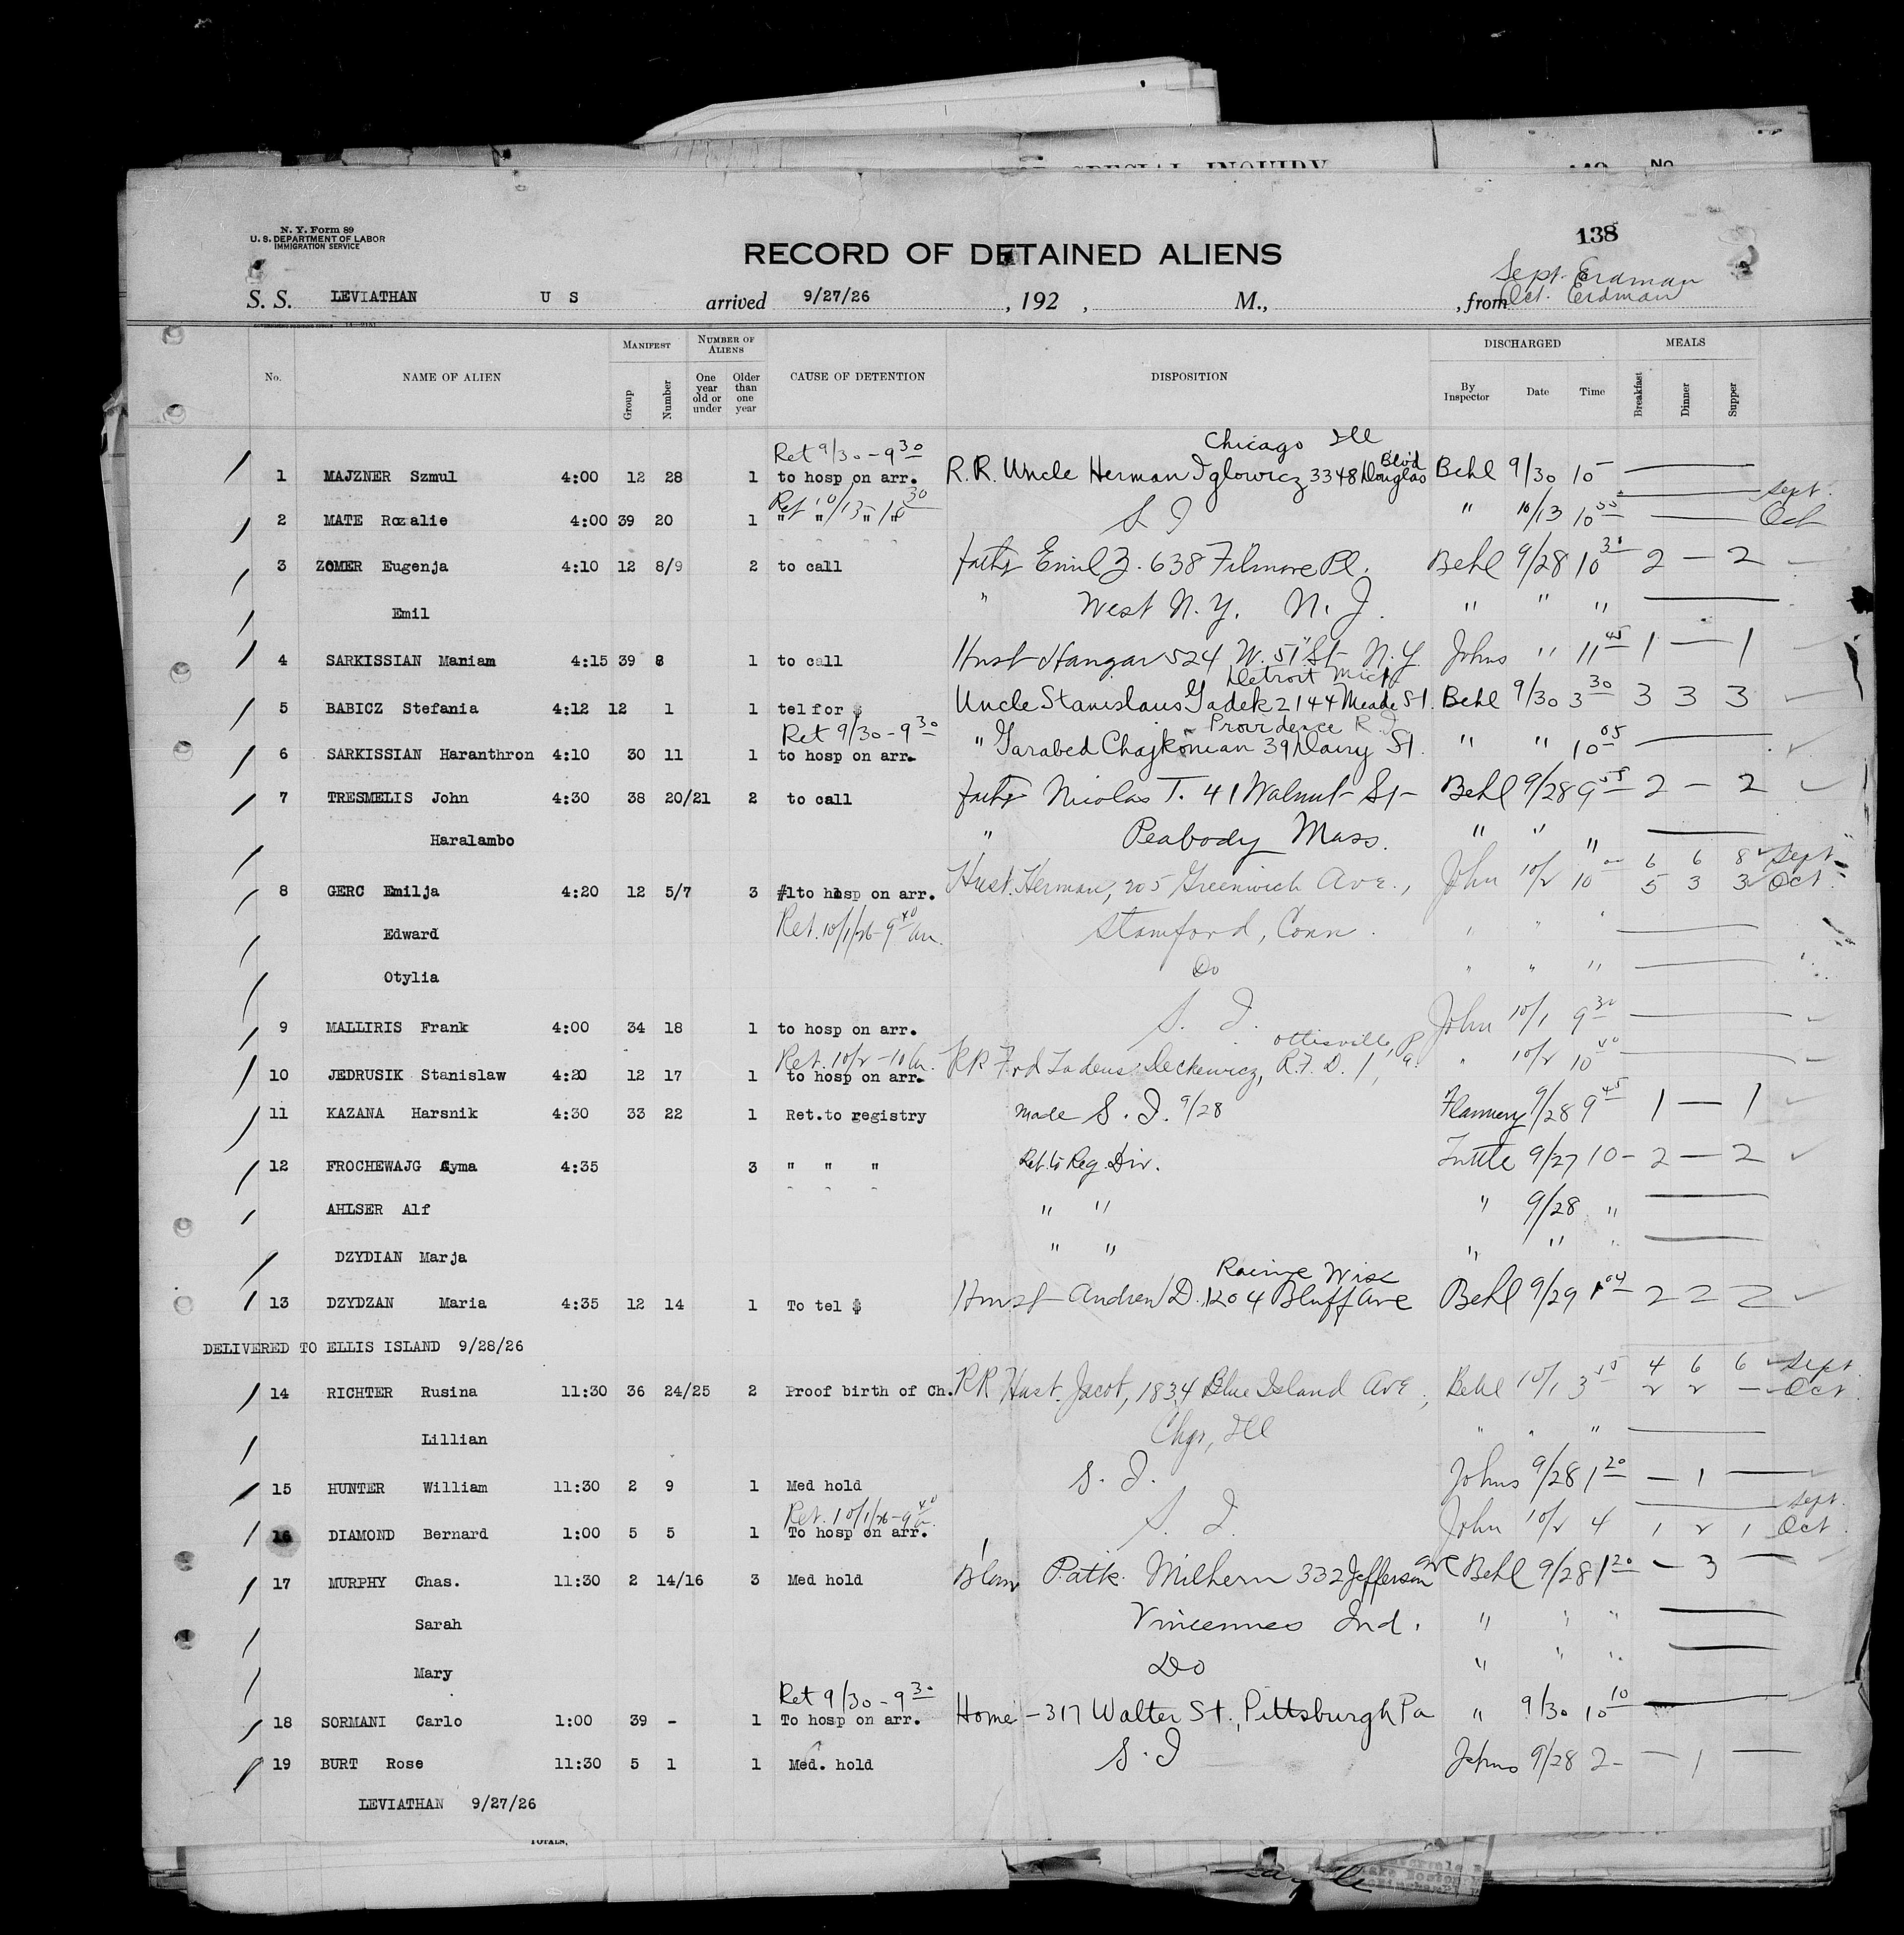 SPECIAL INQUIRY
No
N. Y. Form 89
U. S. DEPARTMENT OF LABOR
IMMIGRATION SERVICE
138
RECORD OF DETAINED ALIENS
Sept. Erdman
S. S. LEVIATHAN U S arrived 9/27/26, 192 , M., , from Oct. Erdman
No. NAME OF ALIEN MANIFEST Group Number NUMBER OF ALIENS One year old or under Older than one year CAUSE OF DETENTION DISPOSITION DISCHARGED By Inspector Date Time MEALS Breakfast Dinner Supper
Ret 9/30 - 9 30 Chicago Ill
1 MAJZNER Szmul 4:00 12 28 1 to hosp on arr. R.R. Uncle Herman Iglowicz 3348 Douglas Blvd Behl 9/30 10 —
Ret 10/13 - 10 30 Sept.
2 MATE Rozalie 4:00 39 20 1 " " " " S I " 10/13 10 55 — Oct
3 ZOMER Eugenja 4:10 12 8/9 2 to call fathr Emil Z. 638 Filmore Pl. Behl 9/28 10 30 2 — 2
Emil " West N.Y. N.J. " " " —
4 SARKISSIAN Maniam 4:15 39 8 1 to call Husb Hangar 524 W. 51 St N.Y. Johns " 11 45 1 — 1
Detroit Mich
5 BABICZ Stefania 4:12 12 1 1 tel for $ Uncle Stanislaus Gadek 2144 Meade St. Behl 9/30 3 30 3 3 3
Ret 9/30 - 9 30 Providence R.I.
6 SARKISSIAN Haranthron 4:10 30 11 1 to hosp on arr. " Garabed Chajkonian 39 Dairy St. " " 10 05 —
7 TRESMELIS John 4:30 38 20/21 2 to call fathr Nicolas T. 41 Walnut St — Behl 9/28 9 55 2 — 2
Haralambo " Peabody Mass. " " " —
6 6 8 Sept
8 GERC Emilja 4:20 12 5/7 3 #1 to hosp on arr. Husb. Herman, 205 Greenwich Ave., John 10/2 10 5 3 3 Oct.
Edward Ret. 10/1/26 - 9 40 am. Stamford, Conn. " " " —
Otylia Do " " " —
9 MALLIRIS Frank 4:00 34 18 1 to hosp on arr. S. I. John 10/1 9 30 —
Ret. 10/2 - 10 am. Ottisville, Pa.
10 JEDRUSIK Stanislaw 4:20 12 17 1 to hosp on arr. RR Frd Tadeus Deckewicz, R.F.D. 1, " 10/2 10 40 —
11 KAZANA Harsnik 4:30 33 22 1 Ret.to registry made S. I. 9/28 Flannery 9/28 9 45 1 — 1
12 FROCHEWAJG Cyma 4:35 3 " " " Ret. to Reg. Div. Tuttle 9/27 10 — 2 — 2
AHLSER Alf " " " 9/28 " —
DZYDIAN Marja " " " " " —
Racine Wisc
13 DZYDZAN Maria 4:35 12 14 1 To tel $ Husb Andrew D. 1204 Bluff Ave Behl 9/29 1 04 2 2 2
DELIVERED TO ELLIS ISLAND 9/28/26
4 6 6 Sept
14 RICHTER Rusina 11:30 36 24/25 2 Proof birth of Ch. RR Husb. Jacob, 1834 Blue Island Ave, Behl 10/1 3 15 2 2 — Oct
Lillian Chgo, Ill " " " —
15 HUNTER William 11:30 2 9 1 Med hold S. I. Johns 9/28 1 20 — 1 —
Ret. 10/1/26 - 9 40 a. Sept.
16 DIAMOND Bernard 1:00 5 5 1 To hosp on arr. S. I. John 10/2 4 1 2 1 Oct
17 MURPHY Chas. 11:30 2 14/16 3 Med hold Patk. Milhern 332 Jefferson Ave Behl 9/28 1 20 — 3 —
Sarah Vincennes Ind. " " " —
Mary Do " " " —
Ret 9/30 - 9 30
18 SORMANI Carlo 1:00 39 - 1 To hosp on arr. Home - 317 Walter St., Pittsburgh Pa " 9/30 10 10 —
19 BURT Rose 11:30 5 1 1 Med. hold S. I Johns 9/28 2 — — 1 —
LEVIATHAN 9/27/26
TOTALS,